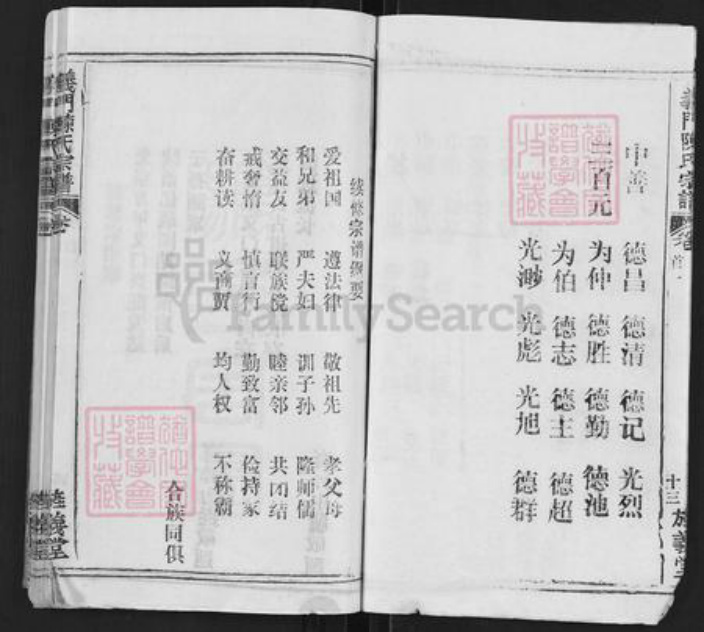 義門陳氏宗譜
卷
首
十三
旌義堂
德昌 德清 德记 光烈
二百元
为仲 德胜 德勤 德池
为伯 德志 德主 德超
光渺 光彪 光旭 德群
续修宗谱纲要
爱祖国 遵法律 敬祖先 孝父母
和兄弟 严夫妇 训子孙 隆师儒
交益友 联族党 睦亲邻 共团结
戒奢惰 慎言行 勤致富 俭持家
奋耕读 义商贾 均人权 不称霸
合族同俱
義門陳氏宗譜
旌義堂
FamilySearch